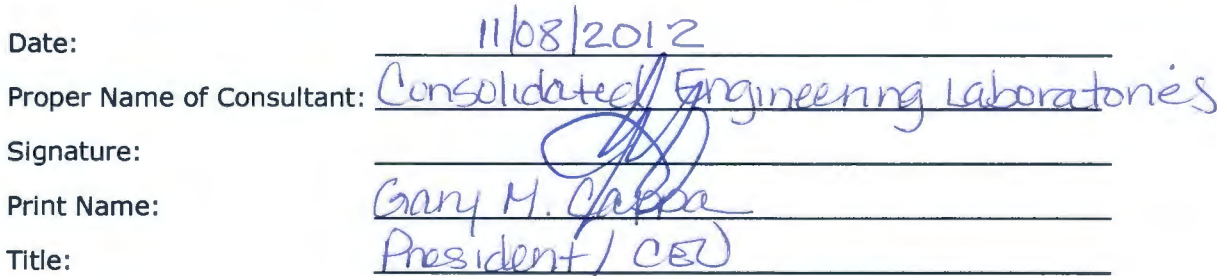 Date: 11/08/2012
Proper Name of Consultant: Consolidated Engineering Laboratories
Signature:
Print Name: Gary M. Cappa
Title: President / CEO